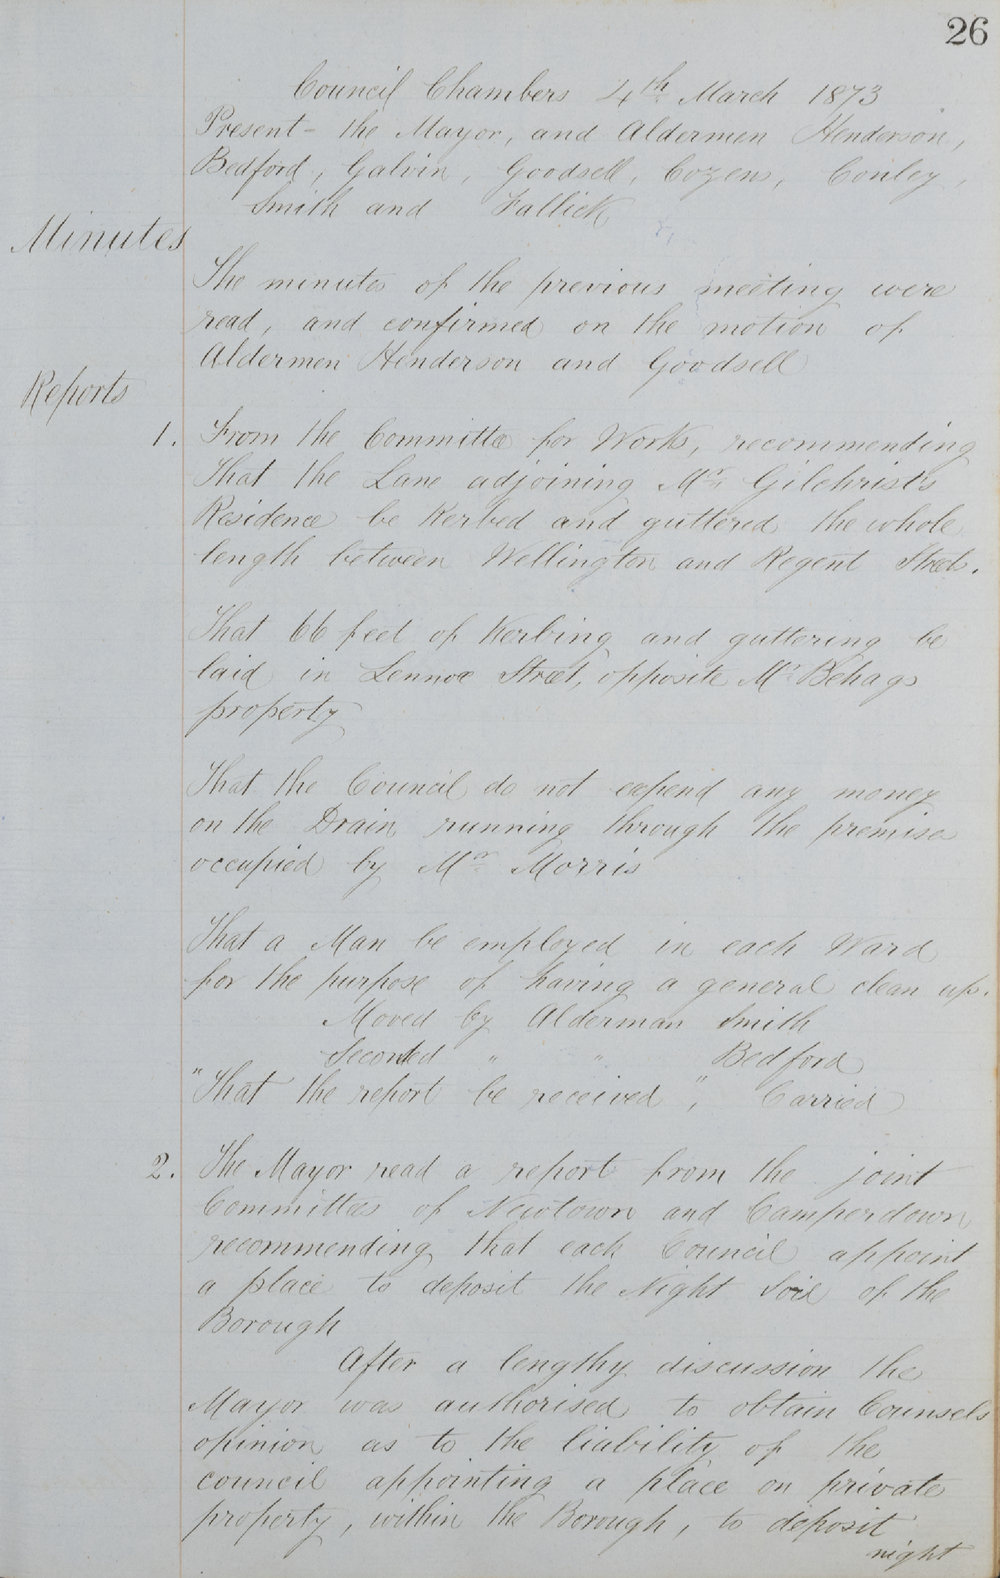 26
Council Chambers 4th March 1873
Present - the Mayor, and Aldermen Henderson,
Bedford, Galvin, Goodsell, Cozens, Conley,
Smith and Fallick
Minutes
The minutes of the previous meeting were
read, and confirmed on the motion of
Aldermen Henderson and Goodsell
Reports
1. From the Committee for Works, recommending
That the Lane adjoining Mr Gilchrist's
Residence be Kerbed and guttered the whole
length between Wellington and Regent Streets.
That 66 feet of Kerbing and guttering be
laid in Lennox Street, opposite Mr Behags
property
That the Council do not expend any money
on the Drain running through the premises
occupied by Mr Morris
That a Man be employed in each Ward
for the purpose of having a general clean up.
Moved by Alderman Smith
Seconded " " Bedford
"That the report be received", Carried
2. The Mayor read a report from the joint
Committees of Newtown and Camperdown
recommending that each Council appoint
a place to deposit the Night Soil of the
Borough
After a lengthy discussion the
Mayor was authorised to obtain Counsels
opinion as to the liability of the
council appointing a place on private
property, within the Borough, to deposit
night